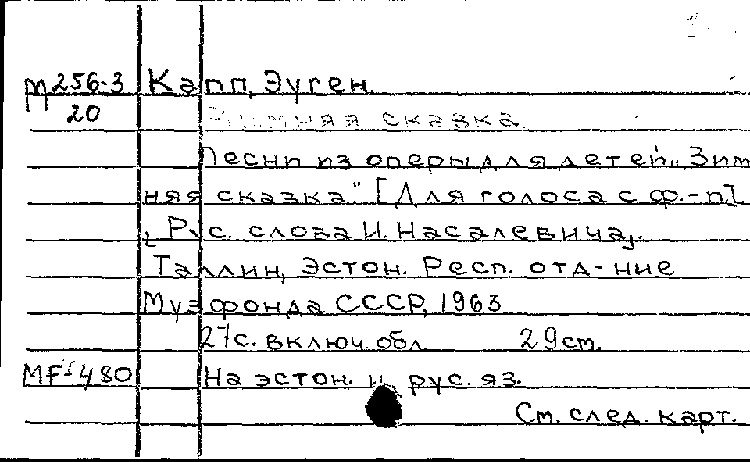 М256-3 Капп, Эуген.
20 Зимняя сказка
Песни из оперы для детей „Зим
няя сказка" [Для голоса с ф.-п].
[Рус. слова И. Насалевича].
Таллин, Эстон. Респ. отд-ние
Музфонда СССР, 1963
27с. включ. обл. 29 cm.
MF-480 На эстон. и рус. яз.
См. след. карт.